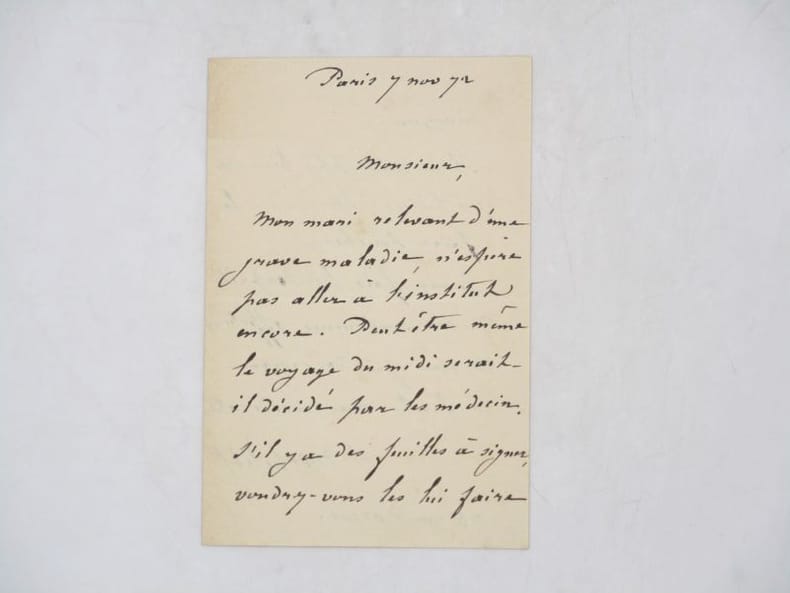 Paris 7 nov 72
Monsieur,
Mon mari relevant d'une
grave maladie, n'espère
pas aller à l'institut
encore. Peut être même
le voyage du midi serait-
il décidé par les médecin.
S'il y a des feuilles à signer,
voudrez-vous les lui faire